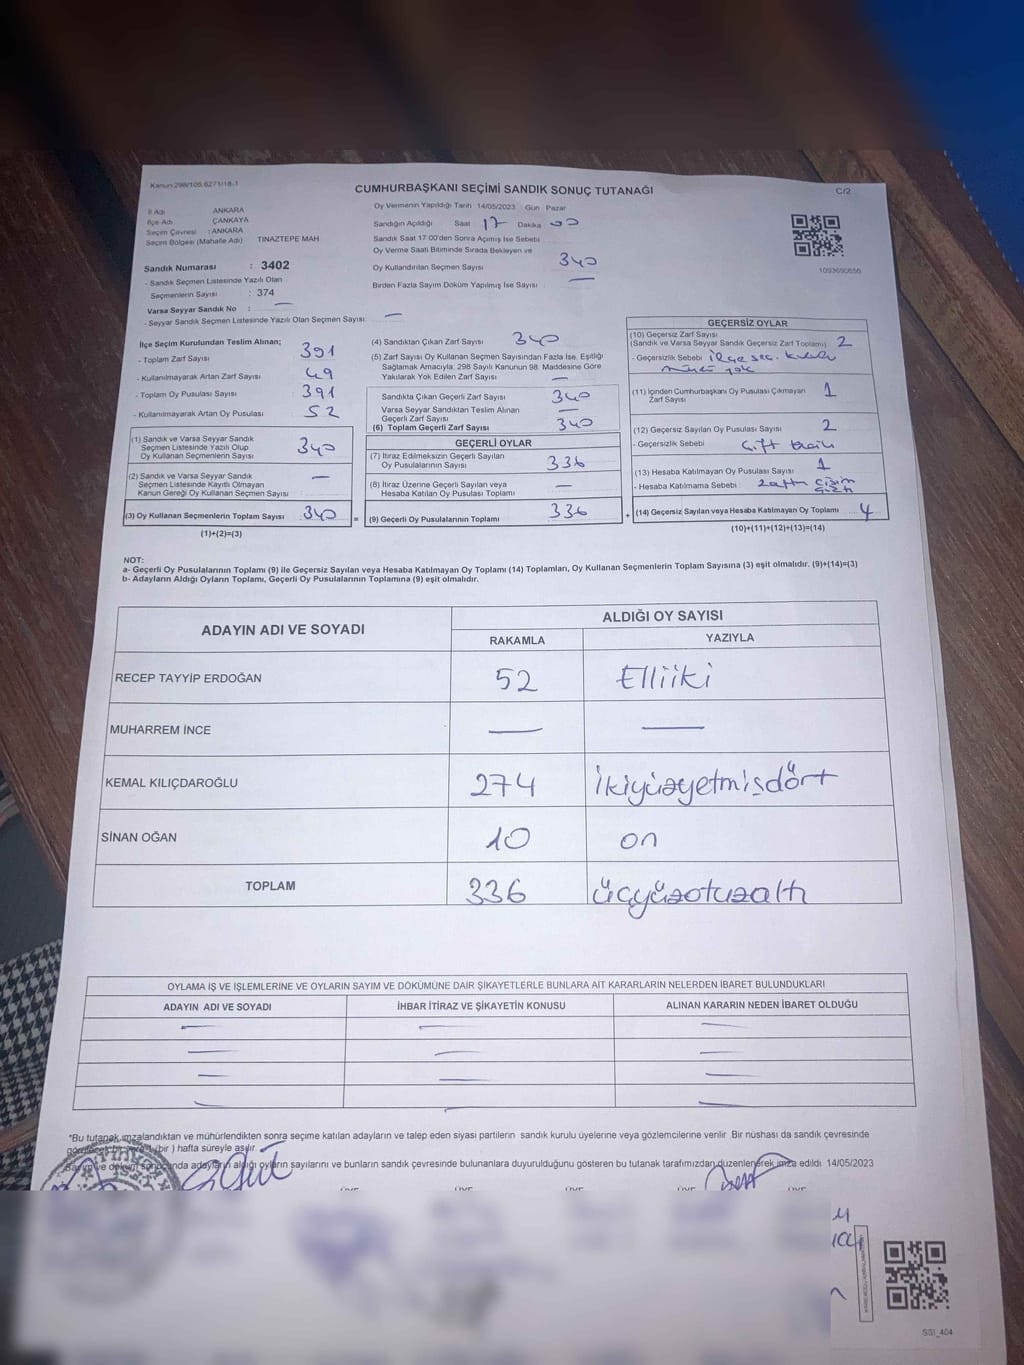 Kanun:298/105,6271/18-1
CUMHURBAŞKANI SEÇİMİ SANDIK SONUÇ TUTANAĞI
C/2
İl Adı ANKARA
İlçe Adı ÇANKAYA
Seçim Çevresi : ANKARA
Seçim Bölgesi (Mahalle Adı) TINAZTEPE MAH
Sandık Numarası : 3402
- Sandık Seçmen Listesinde Yazılı Olan
Seçmenlerin Sayısı : 374
Varsa Seyyar Sandık No : —
- Seyyar Sandık Seçmen Listesinde Yazılı Olan Seçmen Sayısı: —
Oy Vermenin Yapıldığı Tarih 14/05/2023 Gün Pazar
Sandığın Açıldığı Saat 17 Dakika 00
Sandık Saat 17:00'den Sonra Açılmış İse Sebebi
Oy Verme Saati Bitiminde Sırada Bekleyen ve
Oy Kullandırılan Seçmen Sayısı 340
Birden Fazla Sayım Döküm Yapılmış İse Sayısı : —
1093690656
İlçe Seçim Kurulundan Teslim Alınan;
- Toplam Zarf Sayısı 391
- Kullanılmayarak Artan Zarf Sayısı 49
- Toplam Oy Pusulası Sayısı 391
- Kullanılmayarak Artan Oy Pusulası 52
(1) Sandık ve Varsa Seyyar Sandık
Seçmen Listesinde Yazılı Olup
Oy Kullanan Seçmenlerin Sayısı 340
(2) Sandık ve Varsa Seyyar Sandık
Seçmen Listesinde Kayıtlı Olmayan
Kanun Gereği Oy Kullanan Seçmen Sayısı —
(3) Oy Kullanan Seçmenlerin Toplam Sayısı 340 =
(1)+(2)=(3)
(4) Sandıktan Çıkan Zarf Sayısı 340
(5) Zarf Sayısı Oy Kullanan Seçmen Sayısından Fazla İse, Eşitliği
Sağlamak Amacıyla, 298 Sayılı Kanunun 98. Maddesine Göre
Yakılarak Yok Edilen Zarf Sayısı —
Sandıkta Çıkan Geçerli Zarf Sayısı 340
Varsa Seyyar Sandıktan Teslim Alınan
Geçerli Zarf Sayısı —
(6) Toplam Geçerli Zarf Sayısı 340
GEÇERLİ OYLAR
(7) İtiraz Edilmeksizin Geçerli Sayılan
Oy Pusulalarının Sayısı 336
(8) İtiraz Üzerine Geçerli Sayılan veya
Hesaba Katılan Oy Pusulası Toplamı —
(9) Geçerli Oy Pusulalarının Toplamı 336 +
GEÇERSİZ OYLAR
(10) Geçersiz Zarf Sayısı
(Sandık ve Varsa Seyyar Sandık Geçersiz Zarf Toplamı) 2
- Geçersizlik Sebebi ilçe seç. kurulu
mührü yok
(11) İçinden Cumhurbaşkanı Oy Pusulası Çıkmayan
Zarf Sayısı 1
(12) Geçersiz Sayılan Oy Pusulası Sayısı 2
- Geçersizlik Sebebi çift
(13) Hesaba Katılmayan Oy Pusulası Sayısı 1
- Hesaba Katılmama Sebebi : zaftn çizim
(14) Geçersiz Sayılan veya Hesaba Katılmayan Oy Toplamı 4
(10)+(11)+(12)+(13)=(14)
NOT:
a- Geçerli Oy Pusulalarının Toplamı (9) ile Geçersiz Sayılan veya Hesaba Katılmayan Oy Toplamı (14) Toplamları, Oy Kullanan Seçmenlerin Toplam Sayısına (3) eşit olmalıdır. (9)+(14)=(3)
b- Adayların Aldığı Oyların Toplamı, Geçerli Oy Pusulalarının Toplamına (9) eşit olmalıdır.
ADAYIN ADI VE SOYADI
ALDIĞI OY SAYISI
RAKAMLA YAZIYLA
RECEP TAYYİP ERDOĞAN 52 Elliiki
MUHARREM İNCE — —
KEMAL KILIÇDAROĞLU 274 ikiyüzyetmişdört
SİNAN OĞAN 10 on
TOPLAM 336 üçyüzotuzaltı
OYLAMA İŞ VE İŞLEMLERİNE VE OYLARIN SAYIM VE DÖKÜMÜNE DAİR ŞİKAYETLERLE BUNLARA AİT KARARLARIN NELERDEN İBARET BULUNDUKLARI
ADAYIN ADI VE SOYADI İHBAR İTİRAZ VE ŞİKAYETİN KONUSU ALINAN KARARIN NEDEN İBARET OLDUĞU
— — —
— — —
— — —
— — —
*Bu tutanak imzalandıktan ve mühürlendikten sonra seçime katılan adayların ve talep eden siyasi partilerin sandık kurulu üyelerine veya gözlemcilerine verilir. Bir nüshası da sandık çevresinde
(bir ) hafta süreyle asılır.
Sayım ve döküm sonucunda adayların aldığı oyların sayılarını ve bunların sandık çevresinde bulunanlara duyurulduğunu gösteren bu tutanak tarafımızdan düzenlenerek imza edildi. 14/05/2023
SSI_404